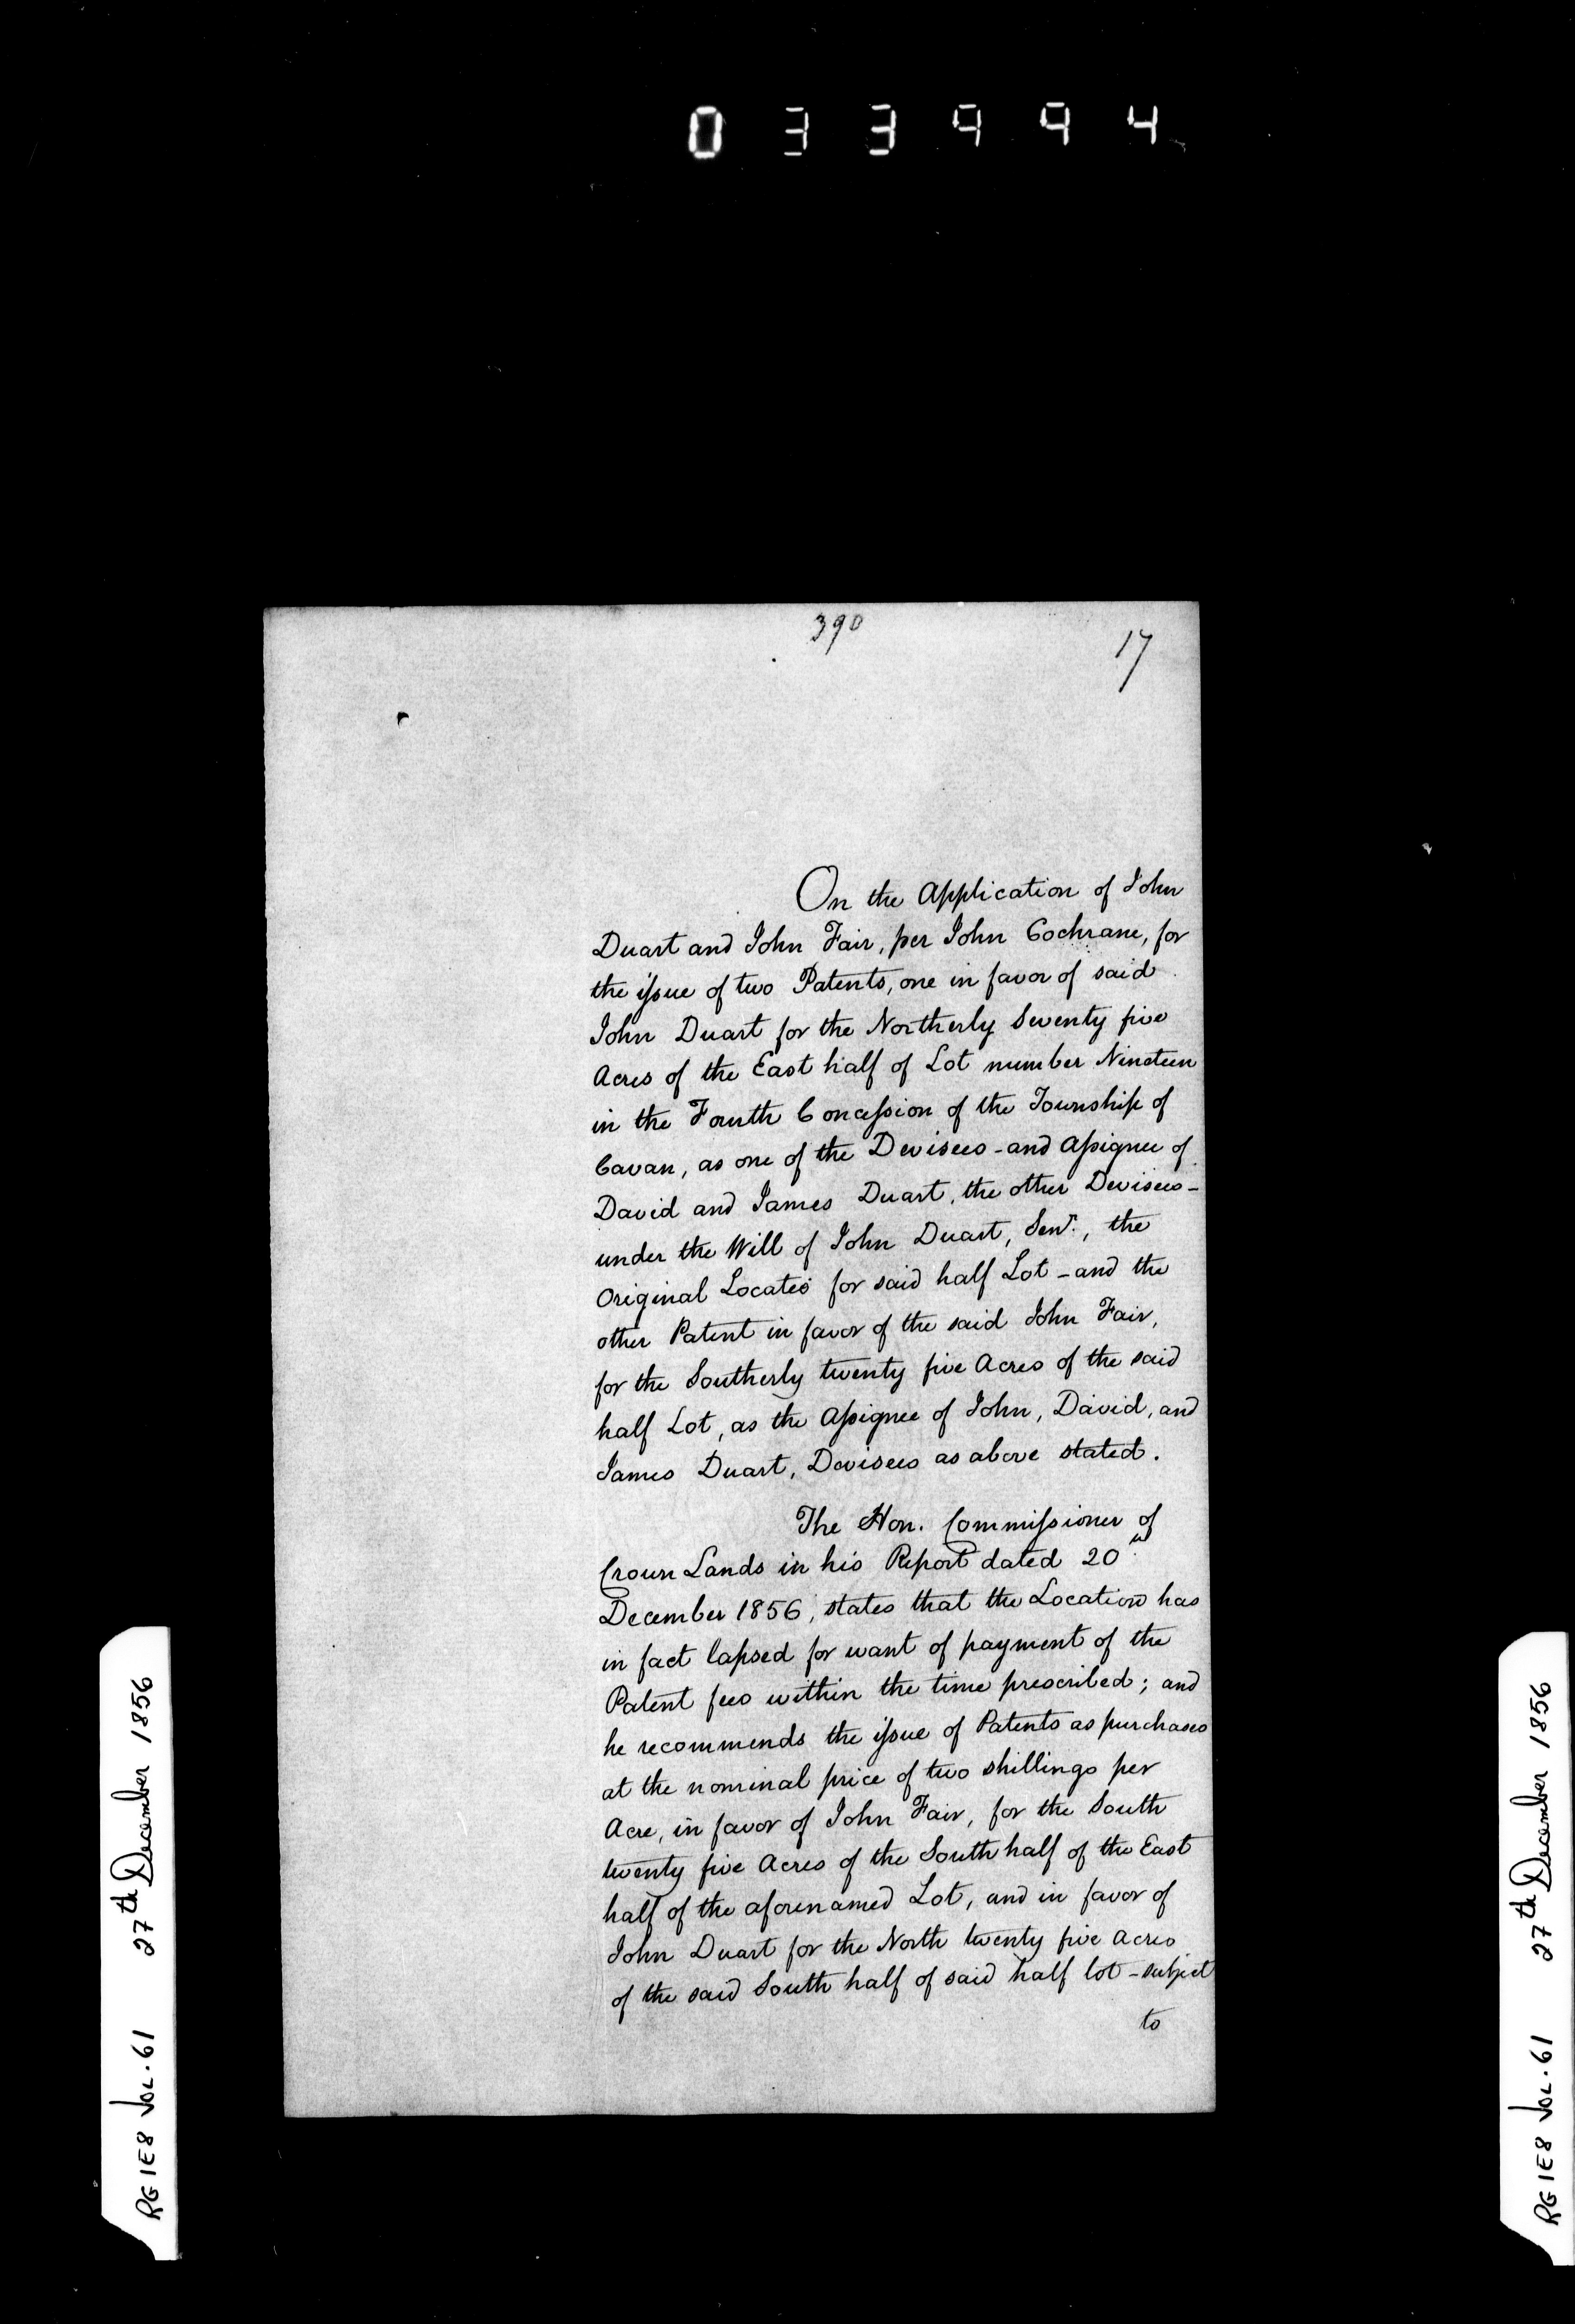 033994
390
17
On the Application of John
Duart and John Fair, per John Cochrane, for
the issue of two Patents, one in favor of said
John Duart for the Northerly Seventy five
Acres of the East half of Lot number Nineteen
in the Fourth Concession of the Township of
Cavan, as one of the Devisees - and Assignee of
David and James Duart, the other Devisees -
under the Will of John Duart, Senr., the
Original Locatee for said half Lot - and the
other Patent in favor of the said John Fair,
for the Southerly twenty five Acres of the said
half Lot, as the Assignee of John, David, and
James Duart, Devisees as above stated.
The Hon. Commissioner of
Crown Lands in his Report dated 20th
December 1856, states that the Location has
in fact lapsed for want of payment of the
Patent fees within the time prescribed; and
he recommends the issue of Patents as purchases
at the nominal price of two shillings per
Acre, in favor of John Fair, for the South
twenty five Acres of the South half of the East
half of the aforenamed Lot, and in favor of
John Duart for the North twenty five Acres
of the said South half of said half lot - subject
to
RG 1E8 VOL. 61 27th December 1856
RG 1E8 VOL. 61 27th December 1856